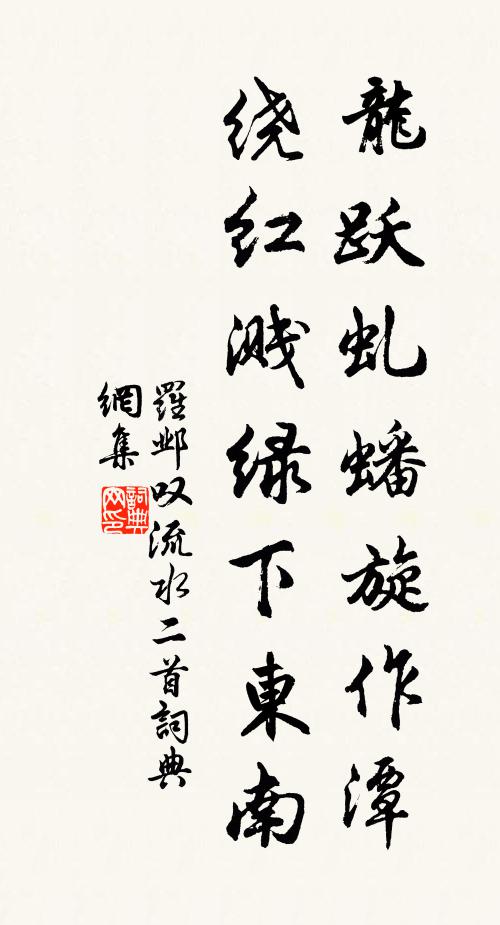 龍跃虬蟠旋作潭
绕红溅绿下東南
羅邺叹流水二首詞典
網集
詞典
网印